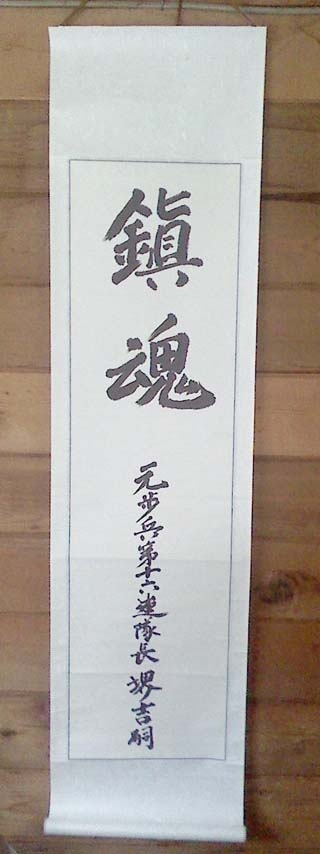 鎮魂
元歩兵第十六連隊長堺吉嗣